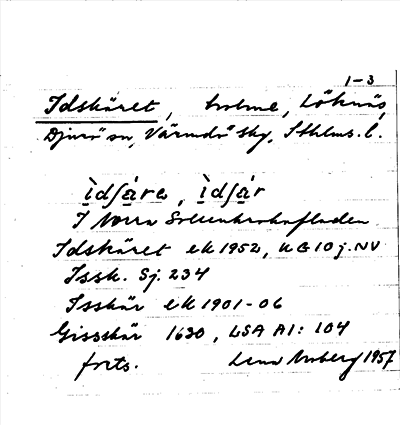 1-3
Idskäret, holme, Löknäs,
Djurö sn, Värmdö skg, Sthlms. l.
ìdʃä́ra, ìdʃä́r
I Norra Sollenkrokafladen
Idskäret ek 1952, KG 10 j. NV
Issk. Sj. 234
Isskär ek 1901-06
Gissskär 1630, LSA A1: 104
forts. 1957